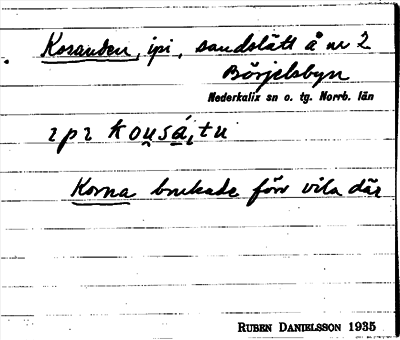 Kosanden, ipi, sandslätt å nr 2
Börjelsbyn
Nederkalix sn o. tg. Norrb. län
ɩpɩ
Korna brukade förr vila där
RUBEN DANIELSSON 1935